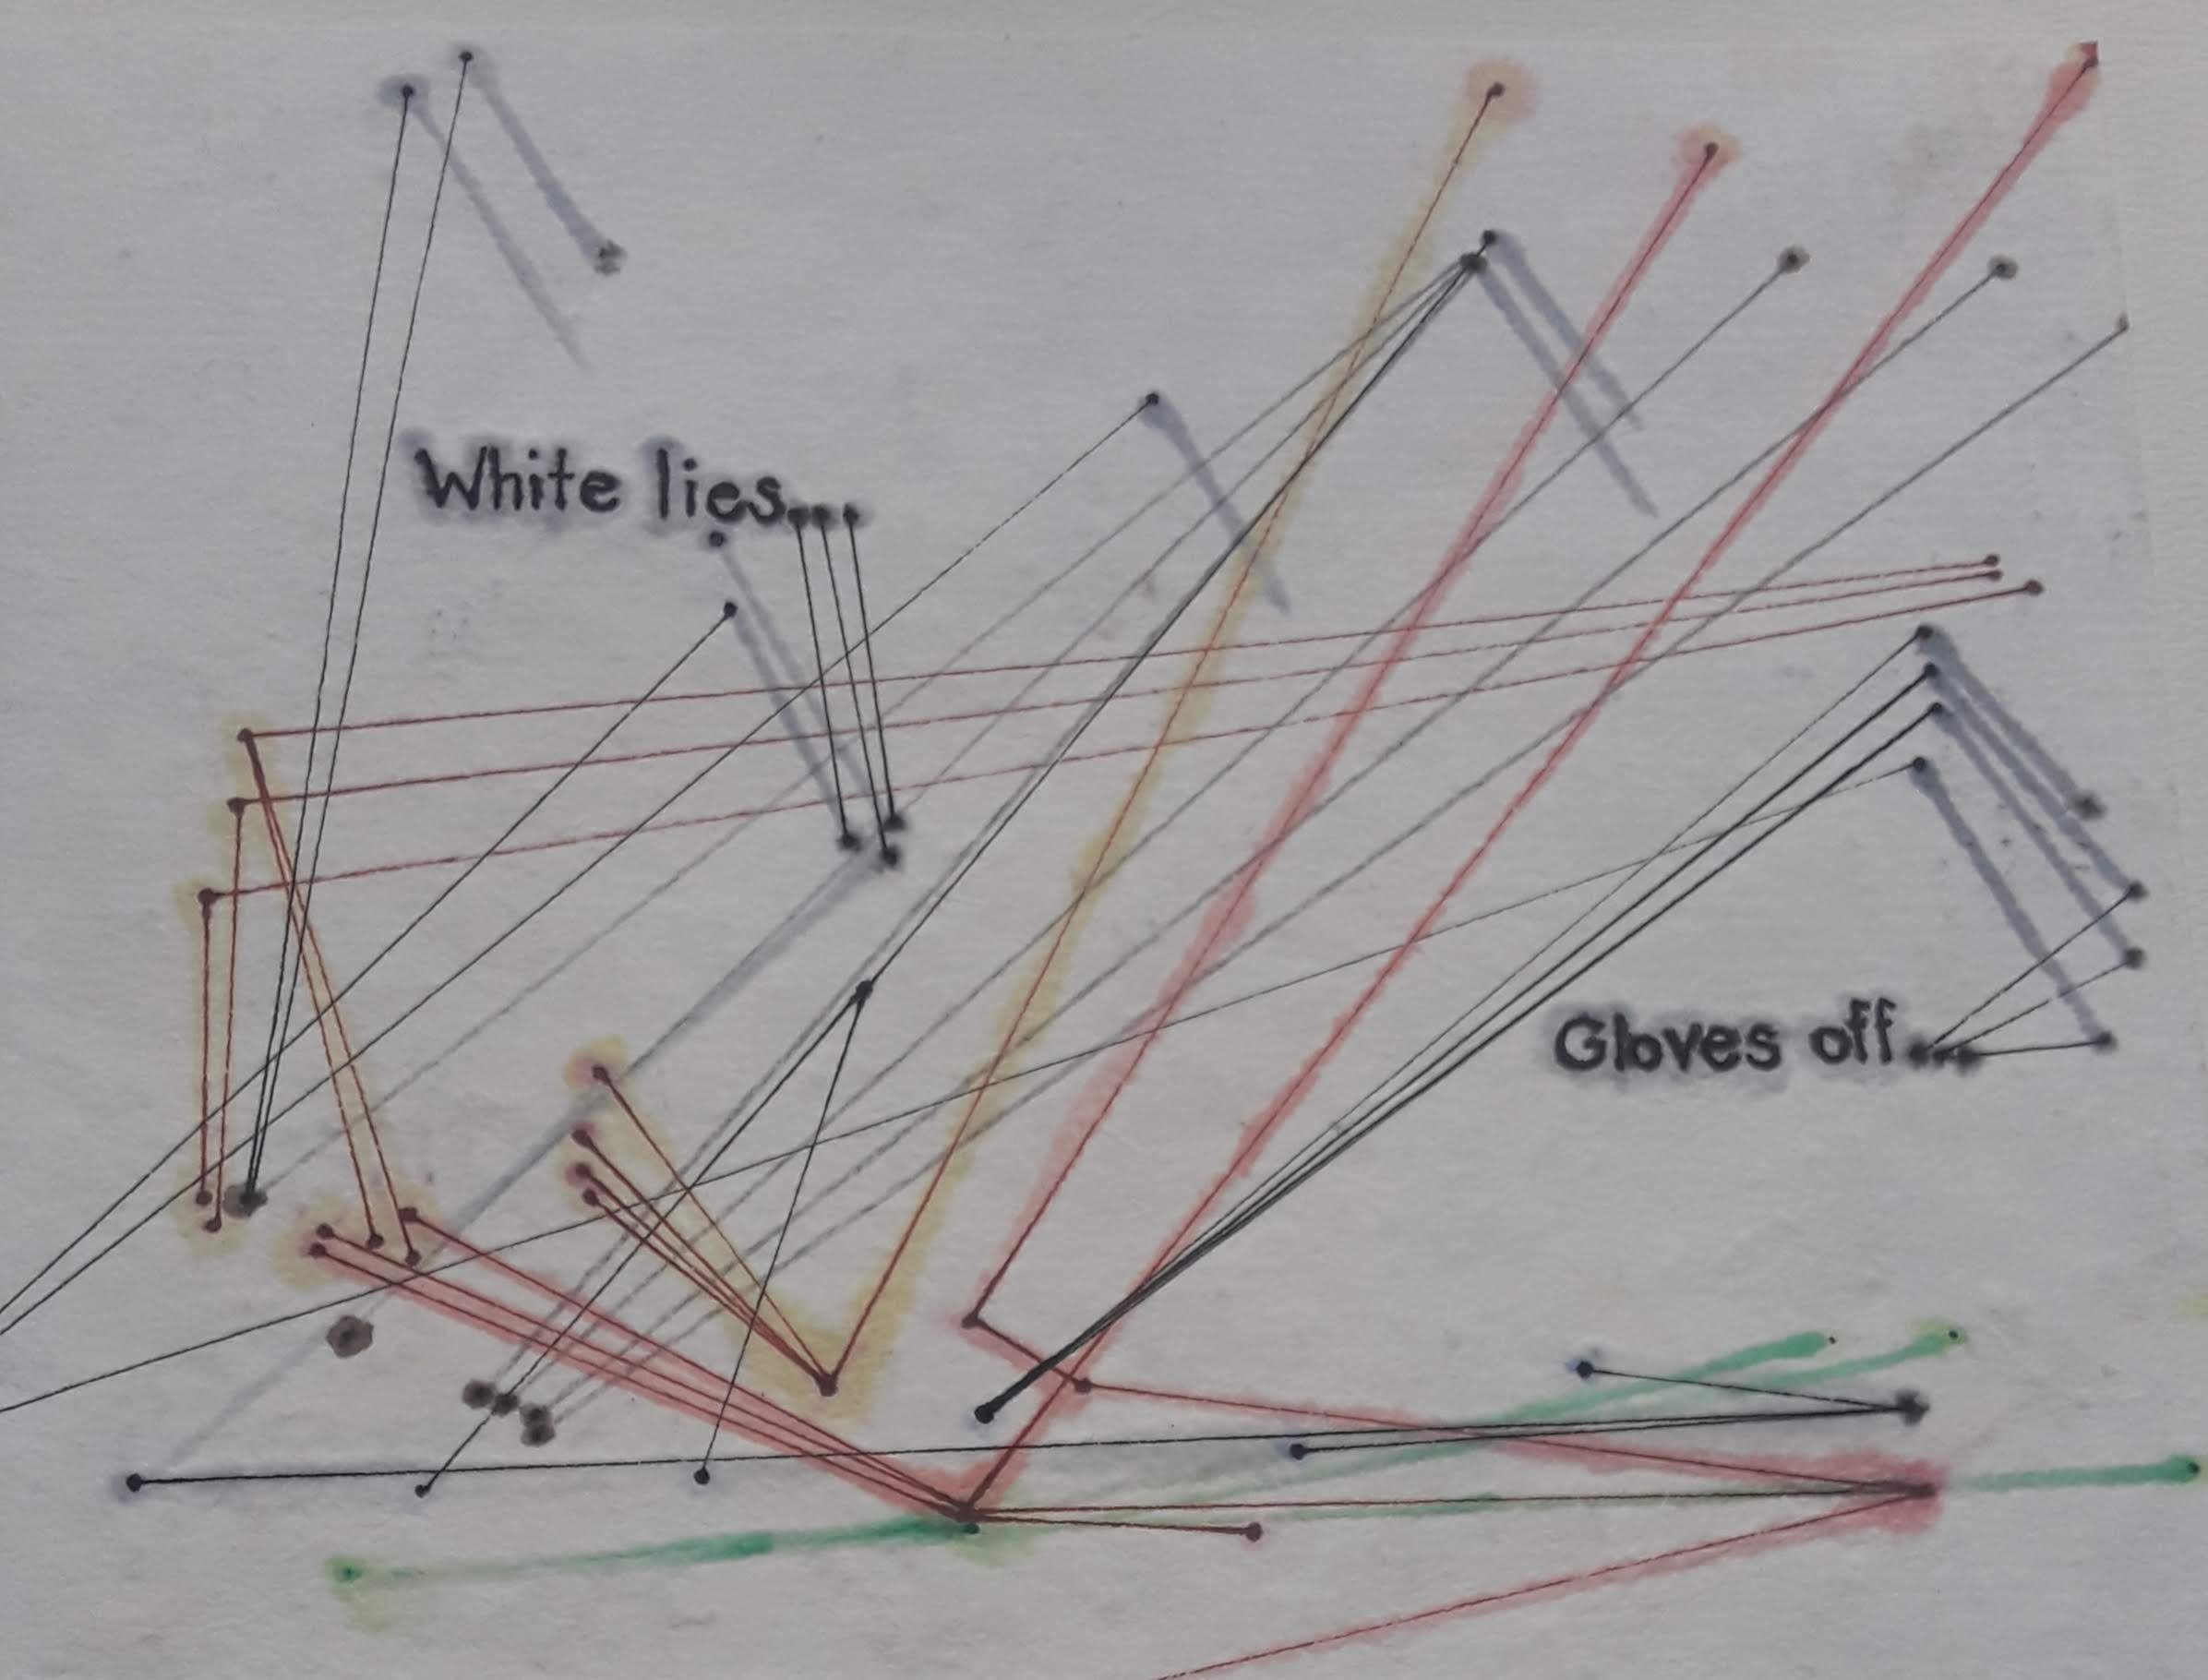 White lies...
Gloves off...